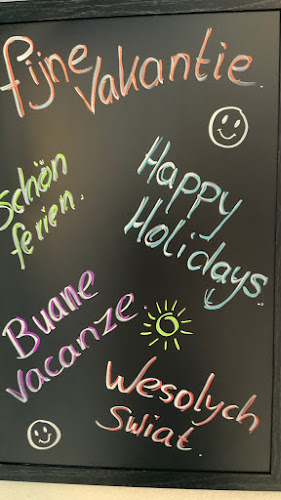 fijne vakantie.
Schön
ferien.
Happy
Holidays.
Buane
vacanze.
Wesolych
Swiat.